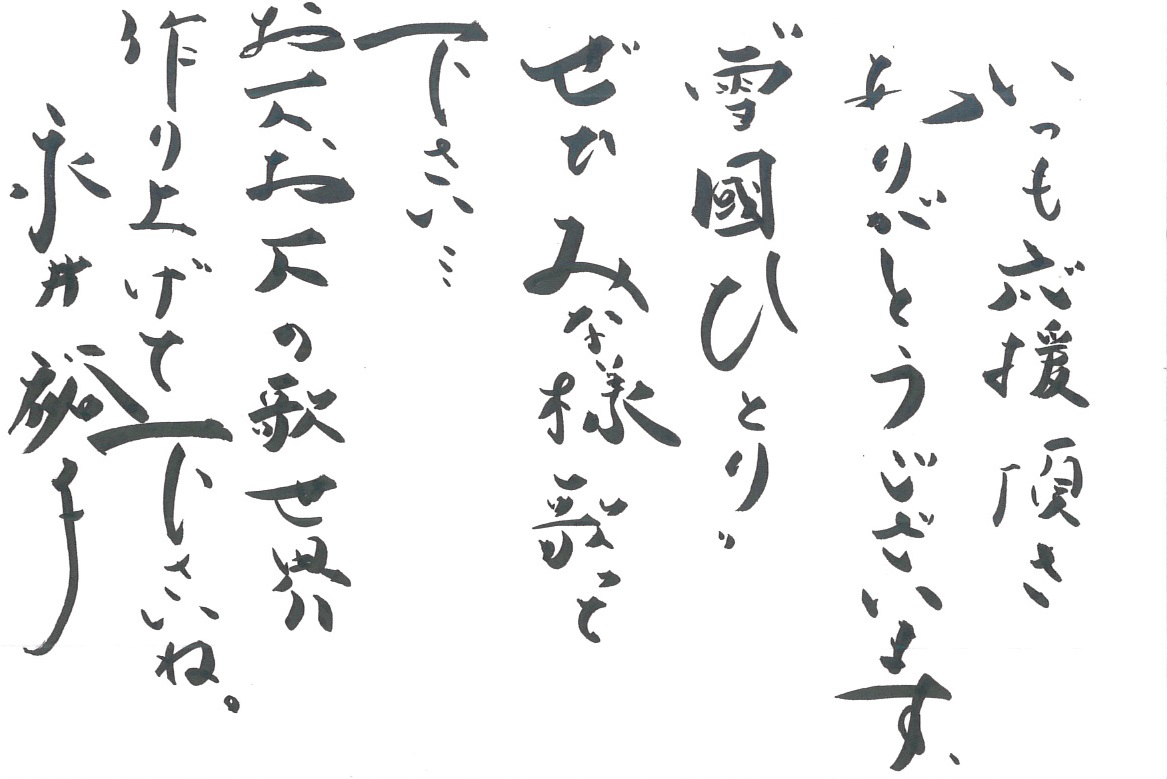 いつも応援頂き
ありがとうございます、
"雪國ひとり"
ぜひみな様歌って
下さい…
お一人、お一人の歌世界
作り上げて下さいね。
永井裕子